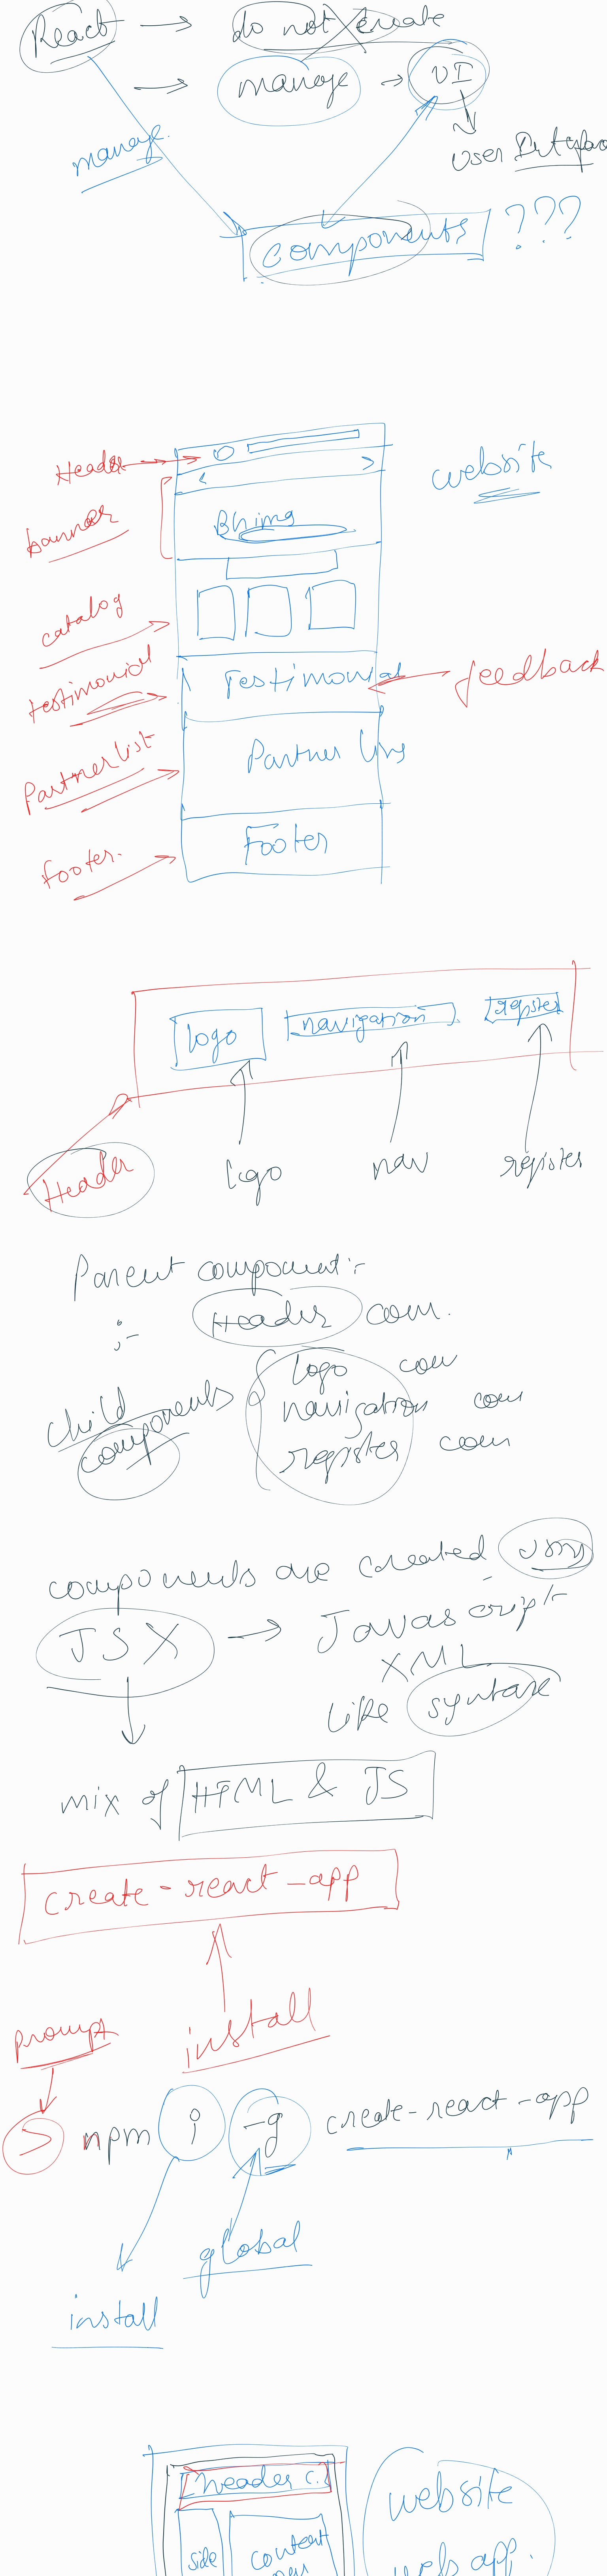 React → do not create
→ manage → UI
manage
User Interface
components ???
Header
website
banner
catalog
testimonial
Testimonial
feedback
Partner list
Partner
footer.
Footer
logo
navigation
register
Header
logo
nav
register
Parent component :-
:- Header com.
child components { logo com
navigation com
register com
components are created using
JSX → Javascript
XML
like syntax
mix of HTML & JS
create-react-app
install
Prompt
> npm i -g create-react-app
global
install
header c.
website
side
content
web app.